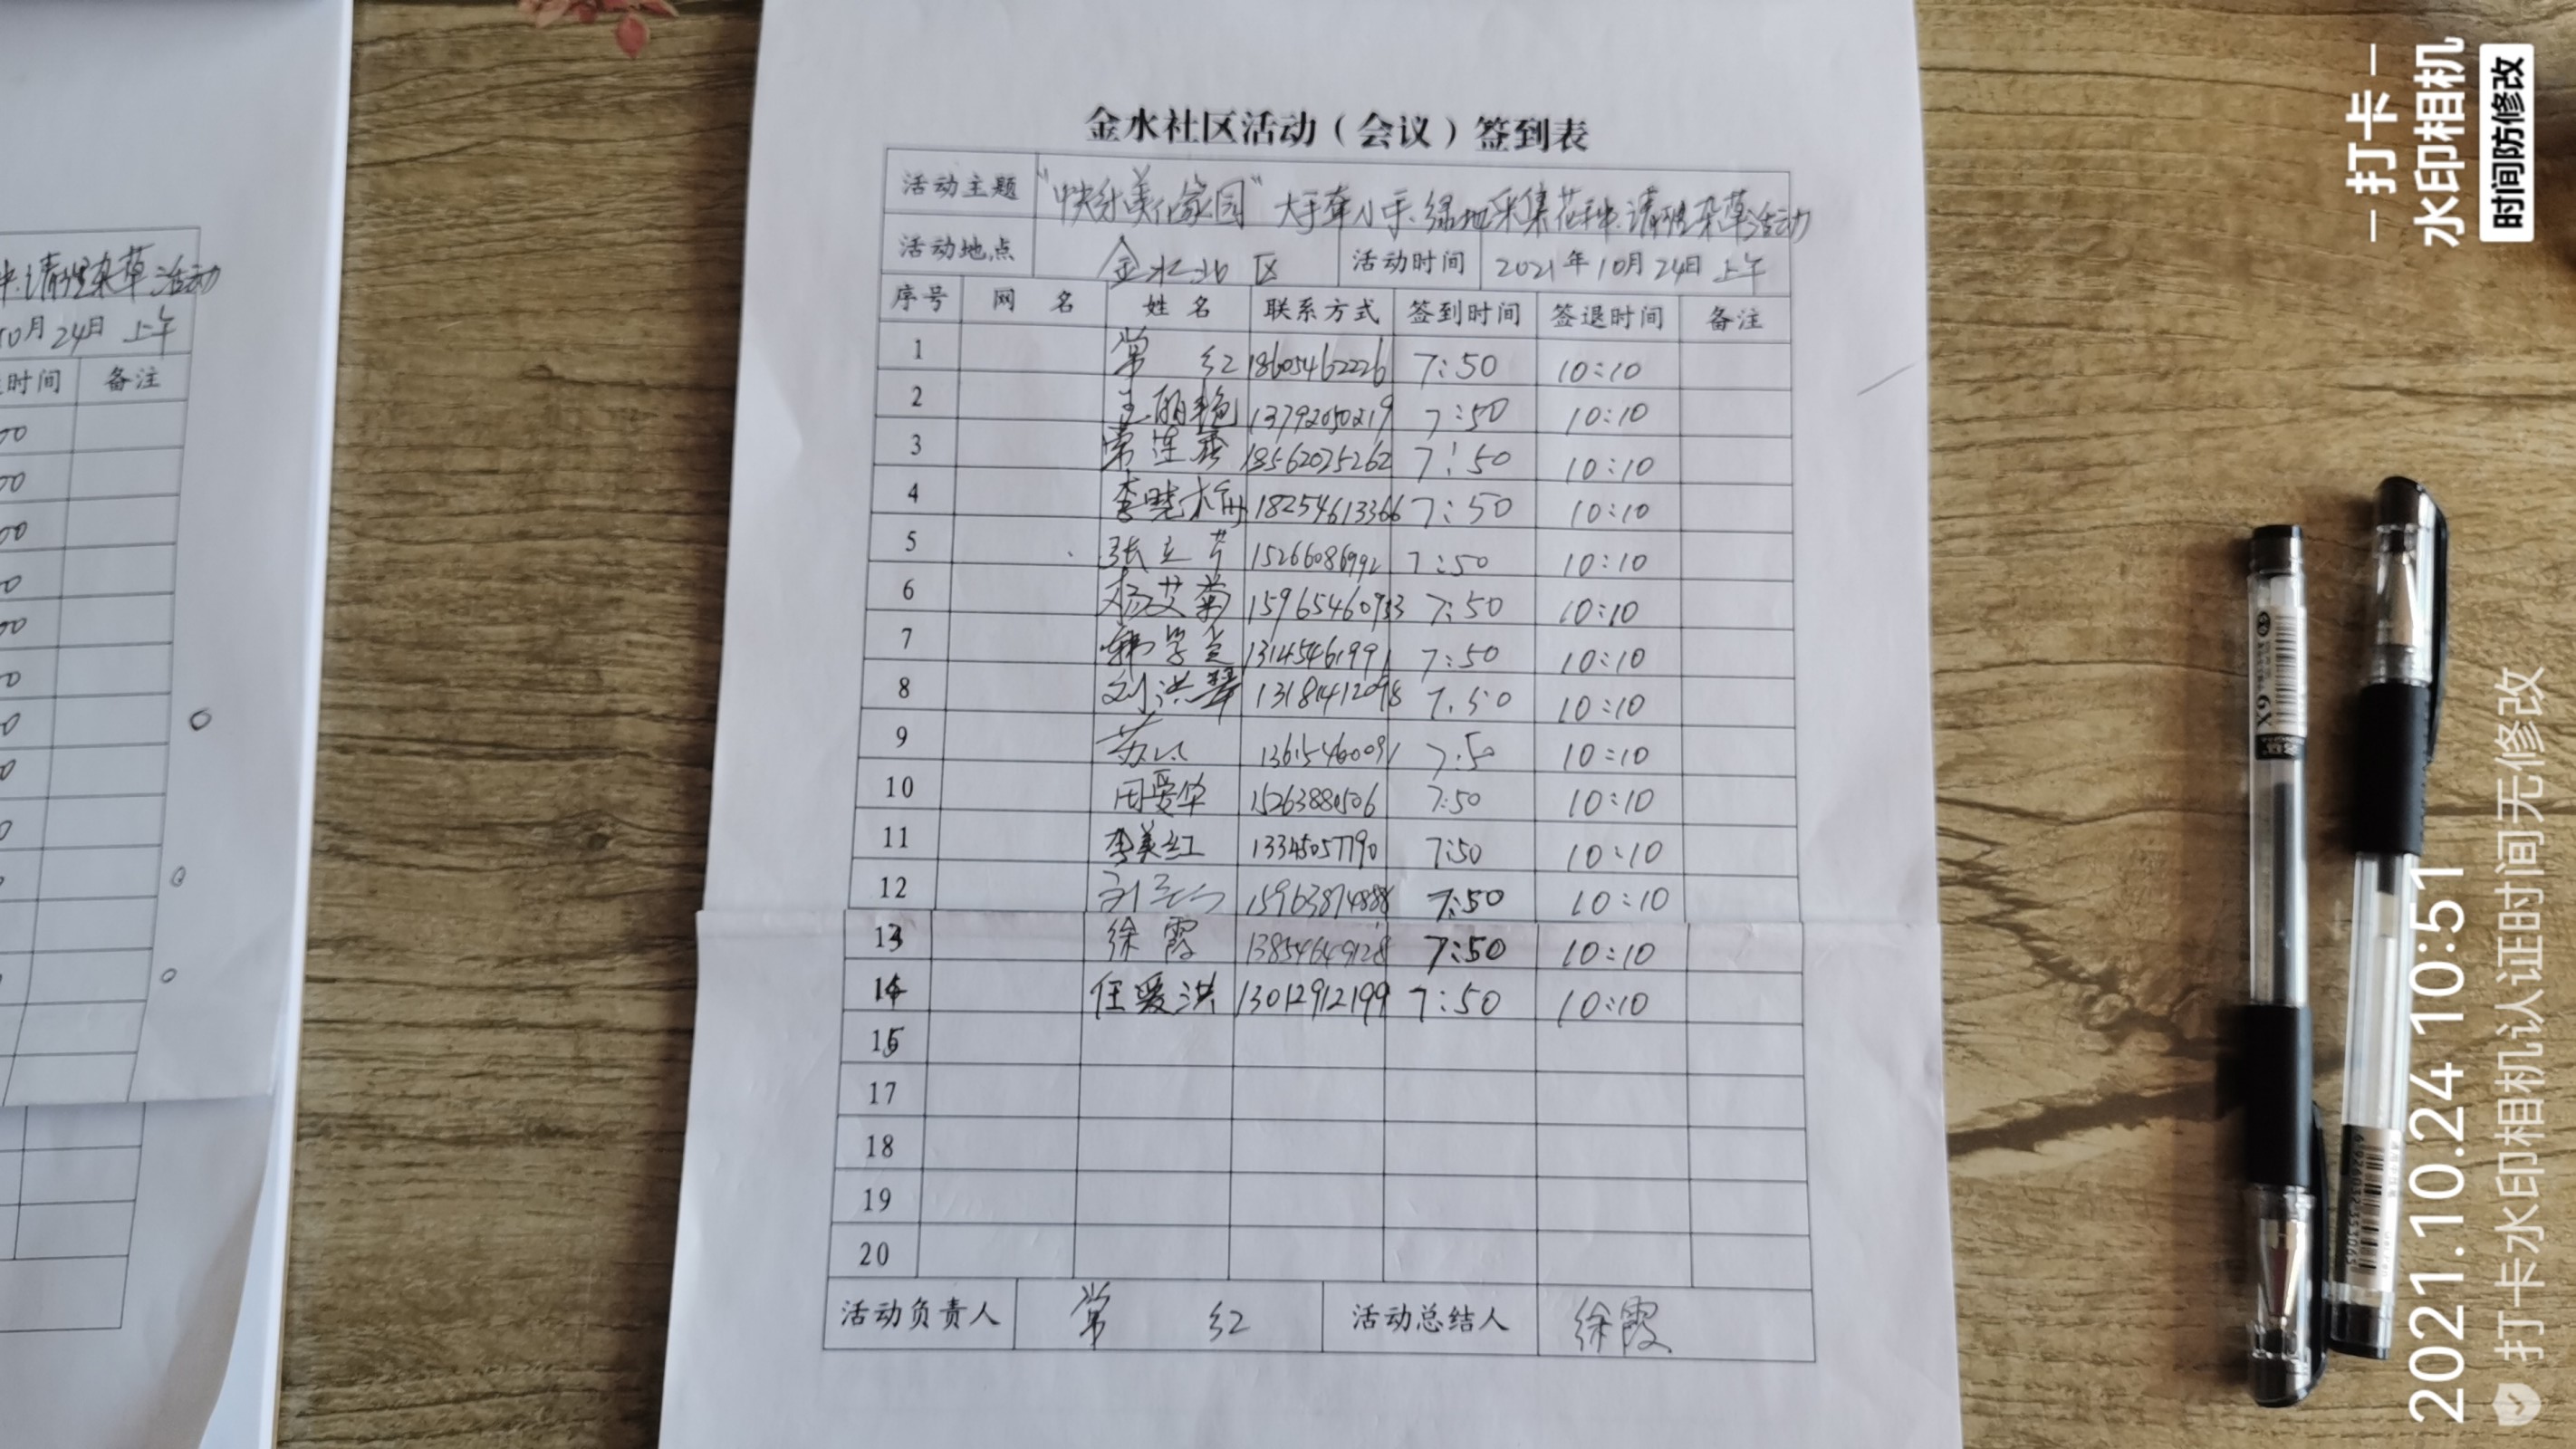 金水社区活动（会议）签到表
活动主题 "快乐美化家园"大手牵小手.绿地采集花种.清理杂草活动
活动地点 金水北区 活动时间 2021年10月24日 上午
序号 网 名 姓 名 联系方式 签到时间 签退时间 备注
1 常 红 18605462226 7:50 10:10
2 王丽艳 13792050219 7:50 10:10
3 常连香 18562025262 7:50 10:10
4 李晓梅 18254613366 7:50 10:10
5 张立芹 15266086992 7:50 10:10
6 杨艾菊 15965460933 7:50 10:10
7 韩学芝 13145461991 7:50 10:10
8 刘洪翠 13181412098 7.50 10:10
9 13615460091 7.50 10:10
10 田爱华 15263880506 7:50 10:10
11 李美红 13345057790 7:50 10:10
12 15963874888 7:50 10:10
13 徐霞 13854649128 7:50 10:10
14 任爱洪 13012912199 7:50 10:10
15
17
18
19
20
活动负责人 常 红 活动总结人 徐霞
清理杂草活动
10月24日 上午
时间 备注
打卡
水印相机
时间防修改
2021.10.24 10:51
打卡水印相机认证时间无修改